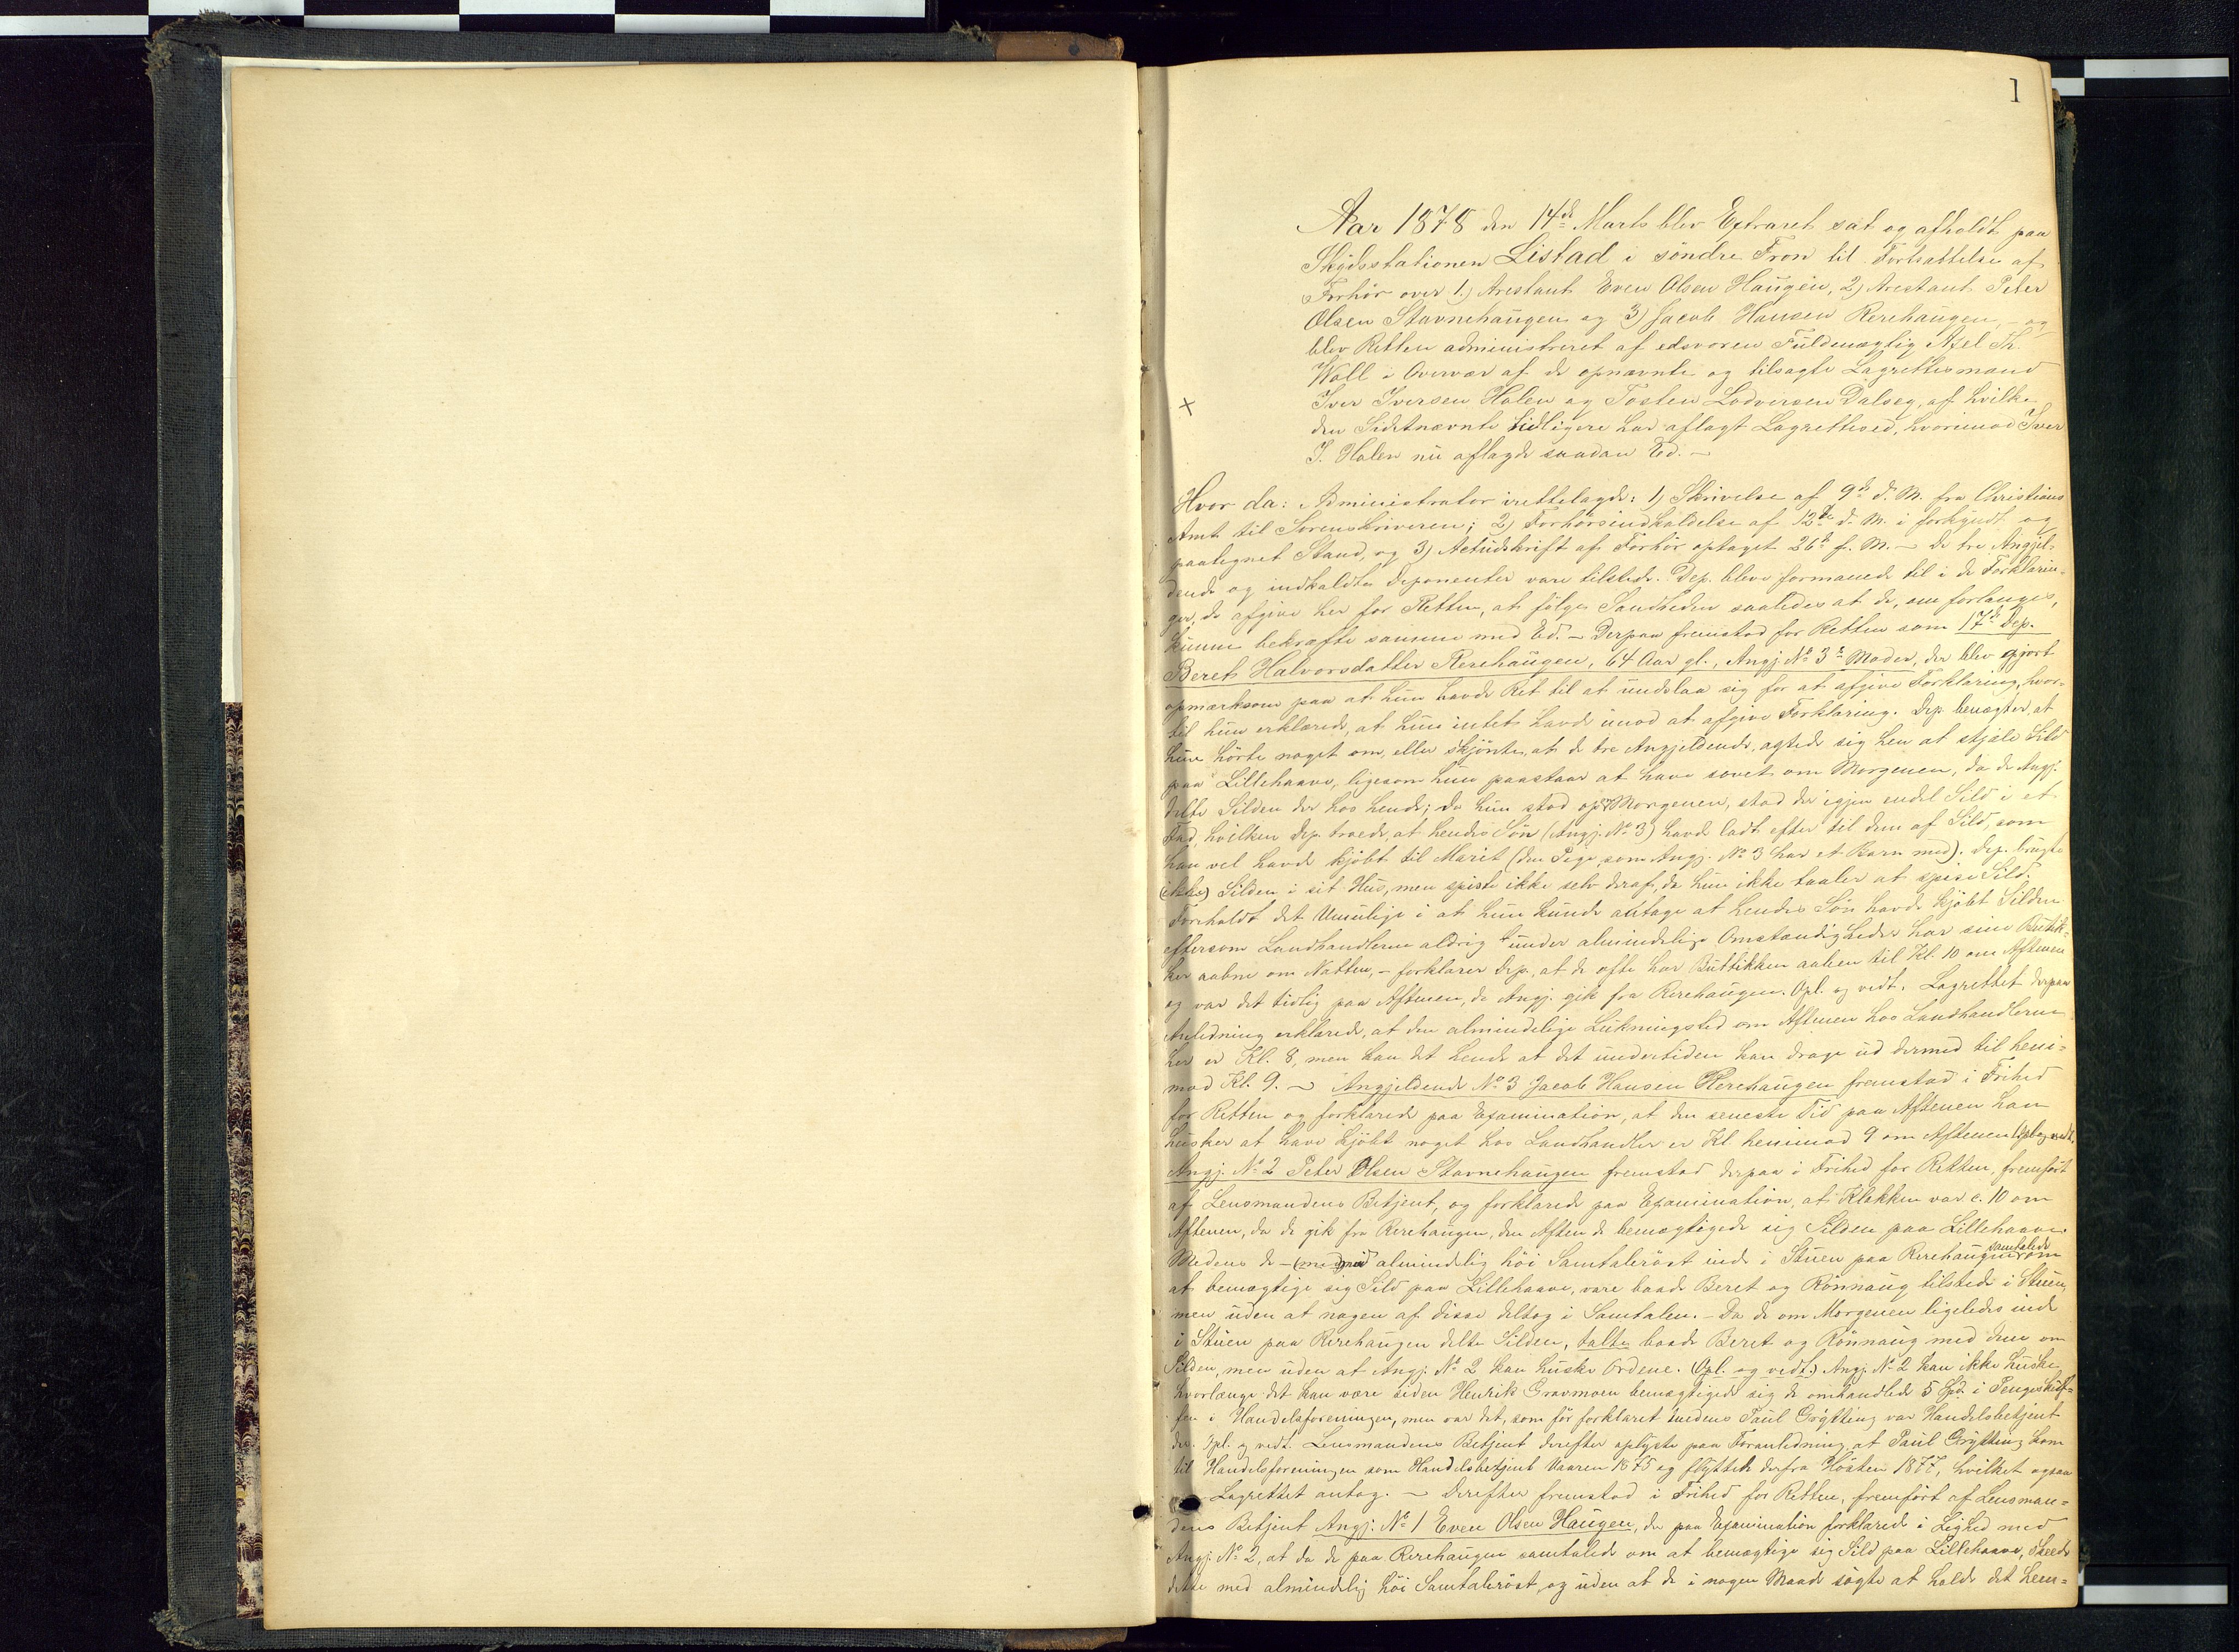 1
Aar 1878 den 14de Marts blev Extraret sat og afholdt paa
Skydsstationen Listad i söndre Fron til Fortsættelse af
Forhör over 1) Arrestant Even Olsen Haugen, 2) Arrestant Peter
Olsen Stavnehaugen og 3) Jacob Hansen Rerehaugen, og
blev Retten administreret af edsvoren Fuldmægtig Axel Th.
Wall i Overvær af de opnævnte og tilsagte Lagrettesmænd
Iver Iversen Holen og Tosten Lodversen Dalseg, af hvilke
den Sidstnævnte tidligere har aflagt Lagretteed, hvorimod Iver
I. Holen nu aflagde saadan Ed. —
Hvor da: Administrator irettelagde: 1) Skrivelse af 9de d. M. fra Christians
Amt til Sorenskriveren; 2) Forhörsindkaldelse af 12te d. M. i forkyndt og
paategnet Stand, og 3) Actudskrift af Forhör optaget 26de f. M. — De tre Angjæl-
dende og indkaldte Deponenter vare tilstede. Dep. bleve formanede til i de Forklarin-
ger, de afgive her for Retten, at fölge Sandheden saaledes at de, om forlanges,
kunne bekræfte samme med Ed. — Derpaa fremstod for Retten som 17de Dep.
Beret Halvorsdatter Rerehaugen, 64 Aar gl., Angj. No 3s Moder, der blev gjort
opmærksom paa at hun havde Ret til at undslaa sig for at afgive Forklaring, hvor-
til hun erklærede, at hun intet havde imod at afgive Forklaring. Dep. benægter, at
hun hörte noget om, eller skjönte, at de tre Angjeldende, agtede sig hen at stjæle Sild
paa Lillehaave, ligesom hun paastaar at have sovet om Morgenen, da de Angj.
delte Silden der hos hende; da hun stod op om Morgenen, stod der igjen endel Sild i et
Fad, hvilken Dep. troede, at hendes Sön (Angj. No 3) havde ladt efter til dem af Sild, som
han vel havde kjöbt til Marit (den Pige, som Angj. No 3 har et Barn med). Dep. brugte
(ikke) Silden i sit Hus, men spiste ikke selv deraf, da hun ikke taaler at spise Sild.
Foreholdt det Umulige i at hun kunde antage at hendes Sön havde kjöbt Silden
eftersom Landhandlerne aldrig under almindelige Omstændigheder har sine Butik-
ker aabne om Natten, — forklarer Dep., at de ofte har Buttikken aaben til Kl. 10 om Aftenen
og var det tidlig paa Aftenen, da Angj. gik fra Rerehaugen. Opl. og vedt. Lagrettet derpaa
Anledning erklærede, at den almindelige Lukningstid om Aftenen hos Landhandlerne
her er Kl. 8, men kan det hende at det undertiden kan drage ud dermed til heni-
mod Kl. 9. — Angjeldende No 3 Jacob Hansen Rerehaugen fremstod i Frihed
for Retten og forklarede paa Examination, at den seneste Tid paa Aftenen han
husker at have kjöbt noget hos Landhandler er Kl henimod 9 om Aftenen Opl. og vedt.
Angj. No 2 Peter Olsen Stavnehaugen fremstod derpaa i Frihed for Retten, fremfört
af Lensmandens Betjent, og forklarede paa Examination, at Klokken var c. 10 om
Aftenen, da de gik fra Rerehaugen, den Aften de bemægtigede sig Silden paa Lillehaave.
Medens de — med almindelig höi Samtaleröst inde i Stuen paa Rerehaugen samtalede om
at bemægtige sig Sild paa Lillehaave, vare baade Beret og Rönnaug tilstede i Stuen,
men uden at nogen af disse deltog i Samtalen. — Da de om Morgenen ligeledes inde
i Stuen paa Rerehaugen delte Silden, talte baade Beret og Rönnaug med dem om
Silden, men uden at Angj. No 2 kan huske Ordene. (Opl. og vedt.) Angj. No 2 kan ikke huske
hvorlænge det kan være siden Henrik Gravmoen bemægtigede sig de omhandlede 5 Spd. i Pengeskuf-
fen i Handelsforeningen, men var det, som för forklaret medens Paul Grytting var Handelsbetjent
der. Opl. og vedt. Lensmandens Betjent derefter oplyste paa Foranledning, at Paul Grytting kom
til Handelsforeningen som Handelsbetjent Vaaren 1875 og flyttede derfra Hösten 1877, hvilket ogsaa
Lagrettet antog. — Derefter fremstod i Frihed for Retten, fremfört af Lensman-
dens Betjent Angj. No 1 Even Olsen Haugen, der paa Examination forklarede i Lighed med
Angj. No 2, at da de paa Rerehaugen samtalede om at bemægtige sig Sild paa Lillehaave, skeede
dette med almindelig höi Samtaleröst, og uden at de i nogen Maade sögte at holde det hem-